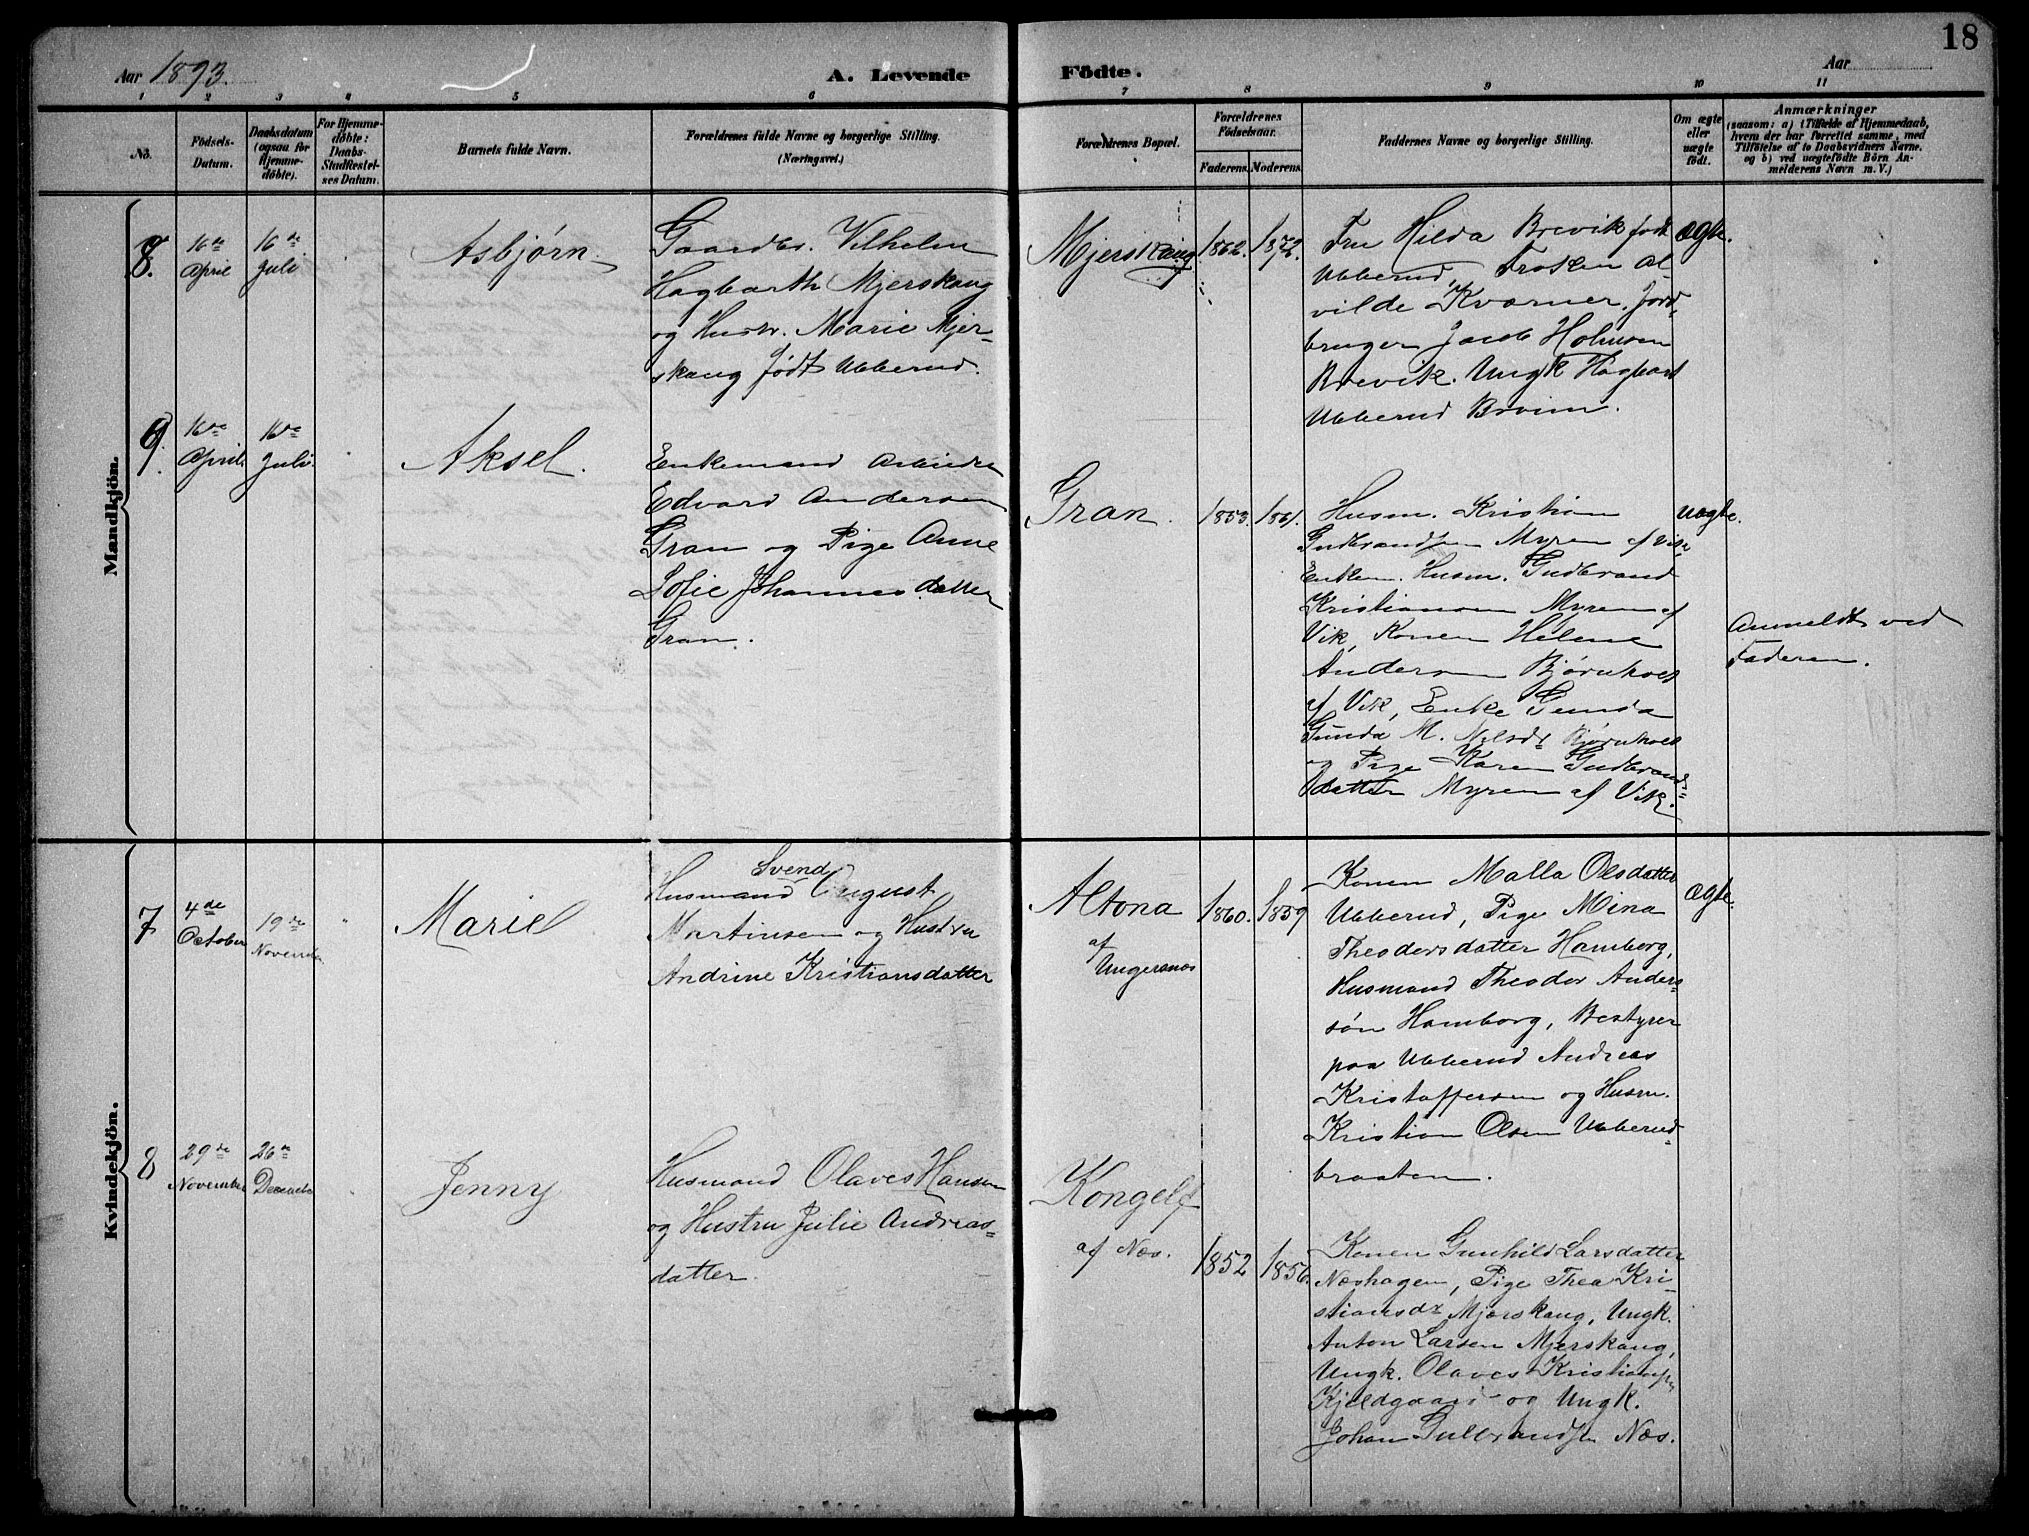 18
Aar 1893.
A. Levende
Födte.
Aar
1 2 3 4 5 6 7 8 9 10 11
No.
Födsels-
Datum.
Daabsdatum
(ogsaa for
Hjemme-
döbte).
For Hjemme-
döbte:
Daabs-
Stadfæstel-
ses Datum.
Barnets fulde Navn.
Forældrenes fulde Navne og borgerlige Stilling.
(Næringsvei.)
Forældrenes Bopæl.
Forældrenes
Födselsaar.
Faderens. Moderens.
Faddernes Navne og borgerlige Stilling.
Om ægte
eller
uægte
födt.
Anmærkninger
(saasom: a) i Tilfælde af Hjemmedaab,
hvem der har forrettet samme, med
Tilföielse af to Daabsvidners Navne.
og b) ved uægtefödte Börn An-
melderens Navn m. V.)
Mandkjön.
8.
16de
April
16de
Juli
Asbjørn
Gaardbr. Vilhelm
Hagbarth Mjerskaug
og Hustr. Marie Mjer-
skaug født Ubberud.
Mjerskaug
1862. 1872.
Fru Hilda Brevik født
Ubberud, Frøken Al-
vilde Kværner, Jord-
bruger Jacob Holmsen
Brevik. Ungk Hagbart
Ubberud
ægte.
9.
16de
April
16de
Juli
Aksel.
Enkemand Arbeider
Edvard Andersen
Gran og Pige Anne
Sofie Johannesdatter
Gran.
Gran.
1853. 1861.
Husm. Kristian
Gudbrandsen Myren af Vik,
Enkem. Husm. Gudbrand
Kristiansen Myren af
Vik, Konen Helene
Andersen Bjørnholt
af Vik, Enke Gunda
Gunda M. Nilsdt Bjørnholt
og Pige Karen Gudbrands-
datter Myren af Vik.
uægte.
Anmeldt ved
Faderen.
Kvindekjön.
7
4de
October
19de
November
Marie
Svend
Husmand August
Martinsen og Hustru
Andrine Kristiansdatter
Altona
af
Ungersnæs
1860. 1859
Konen Malla Olsdatter
Ubberud, Pige Mina
Theodorsdatter Hamborg,
Husmand Theodor Anders-
søn Hamborg, Bestyrer
paa Ubberud Andreas
Kristoffersen og Husm.
Kristian Olsen Ubberud-
braaten.
ægte.
8
29de
November
26de
December
Jenny
Husmand Olaves Hansen
og Hustru Julie Andreas-
datter.
Kongelf
af Næs.
1852 1856.
Konen Gunhild Larsdatter
Næshagen, Pige Thea Kri-
stiansdt Mjerskaug, Ungk.
Anton Larsen Mjerskaug,
Ungk. Olaves Kristiansen
Kjeldgaard og Ungk.
Johan Gulbrandsen Næs.